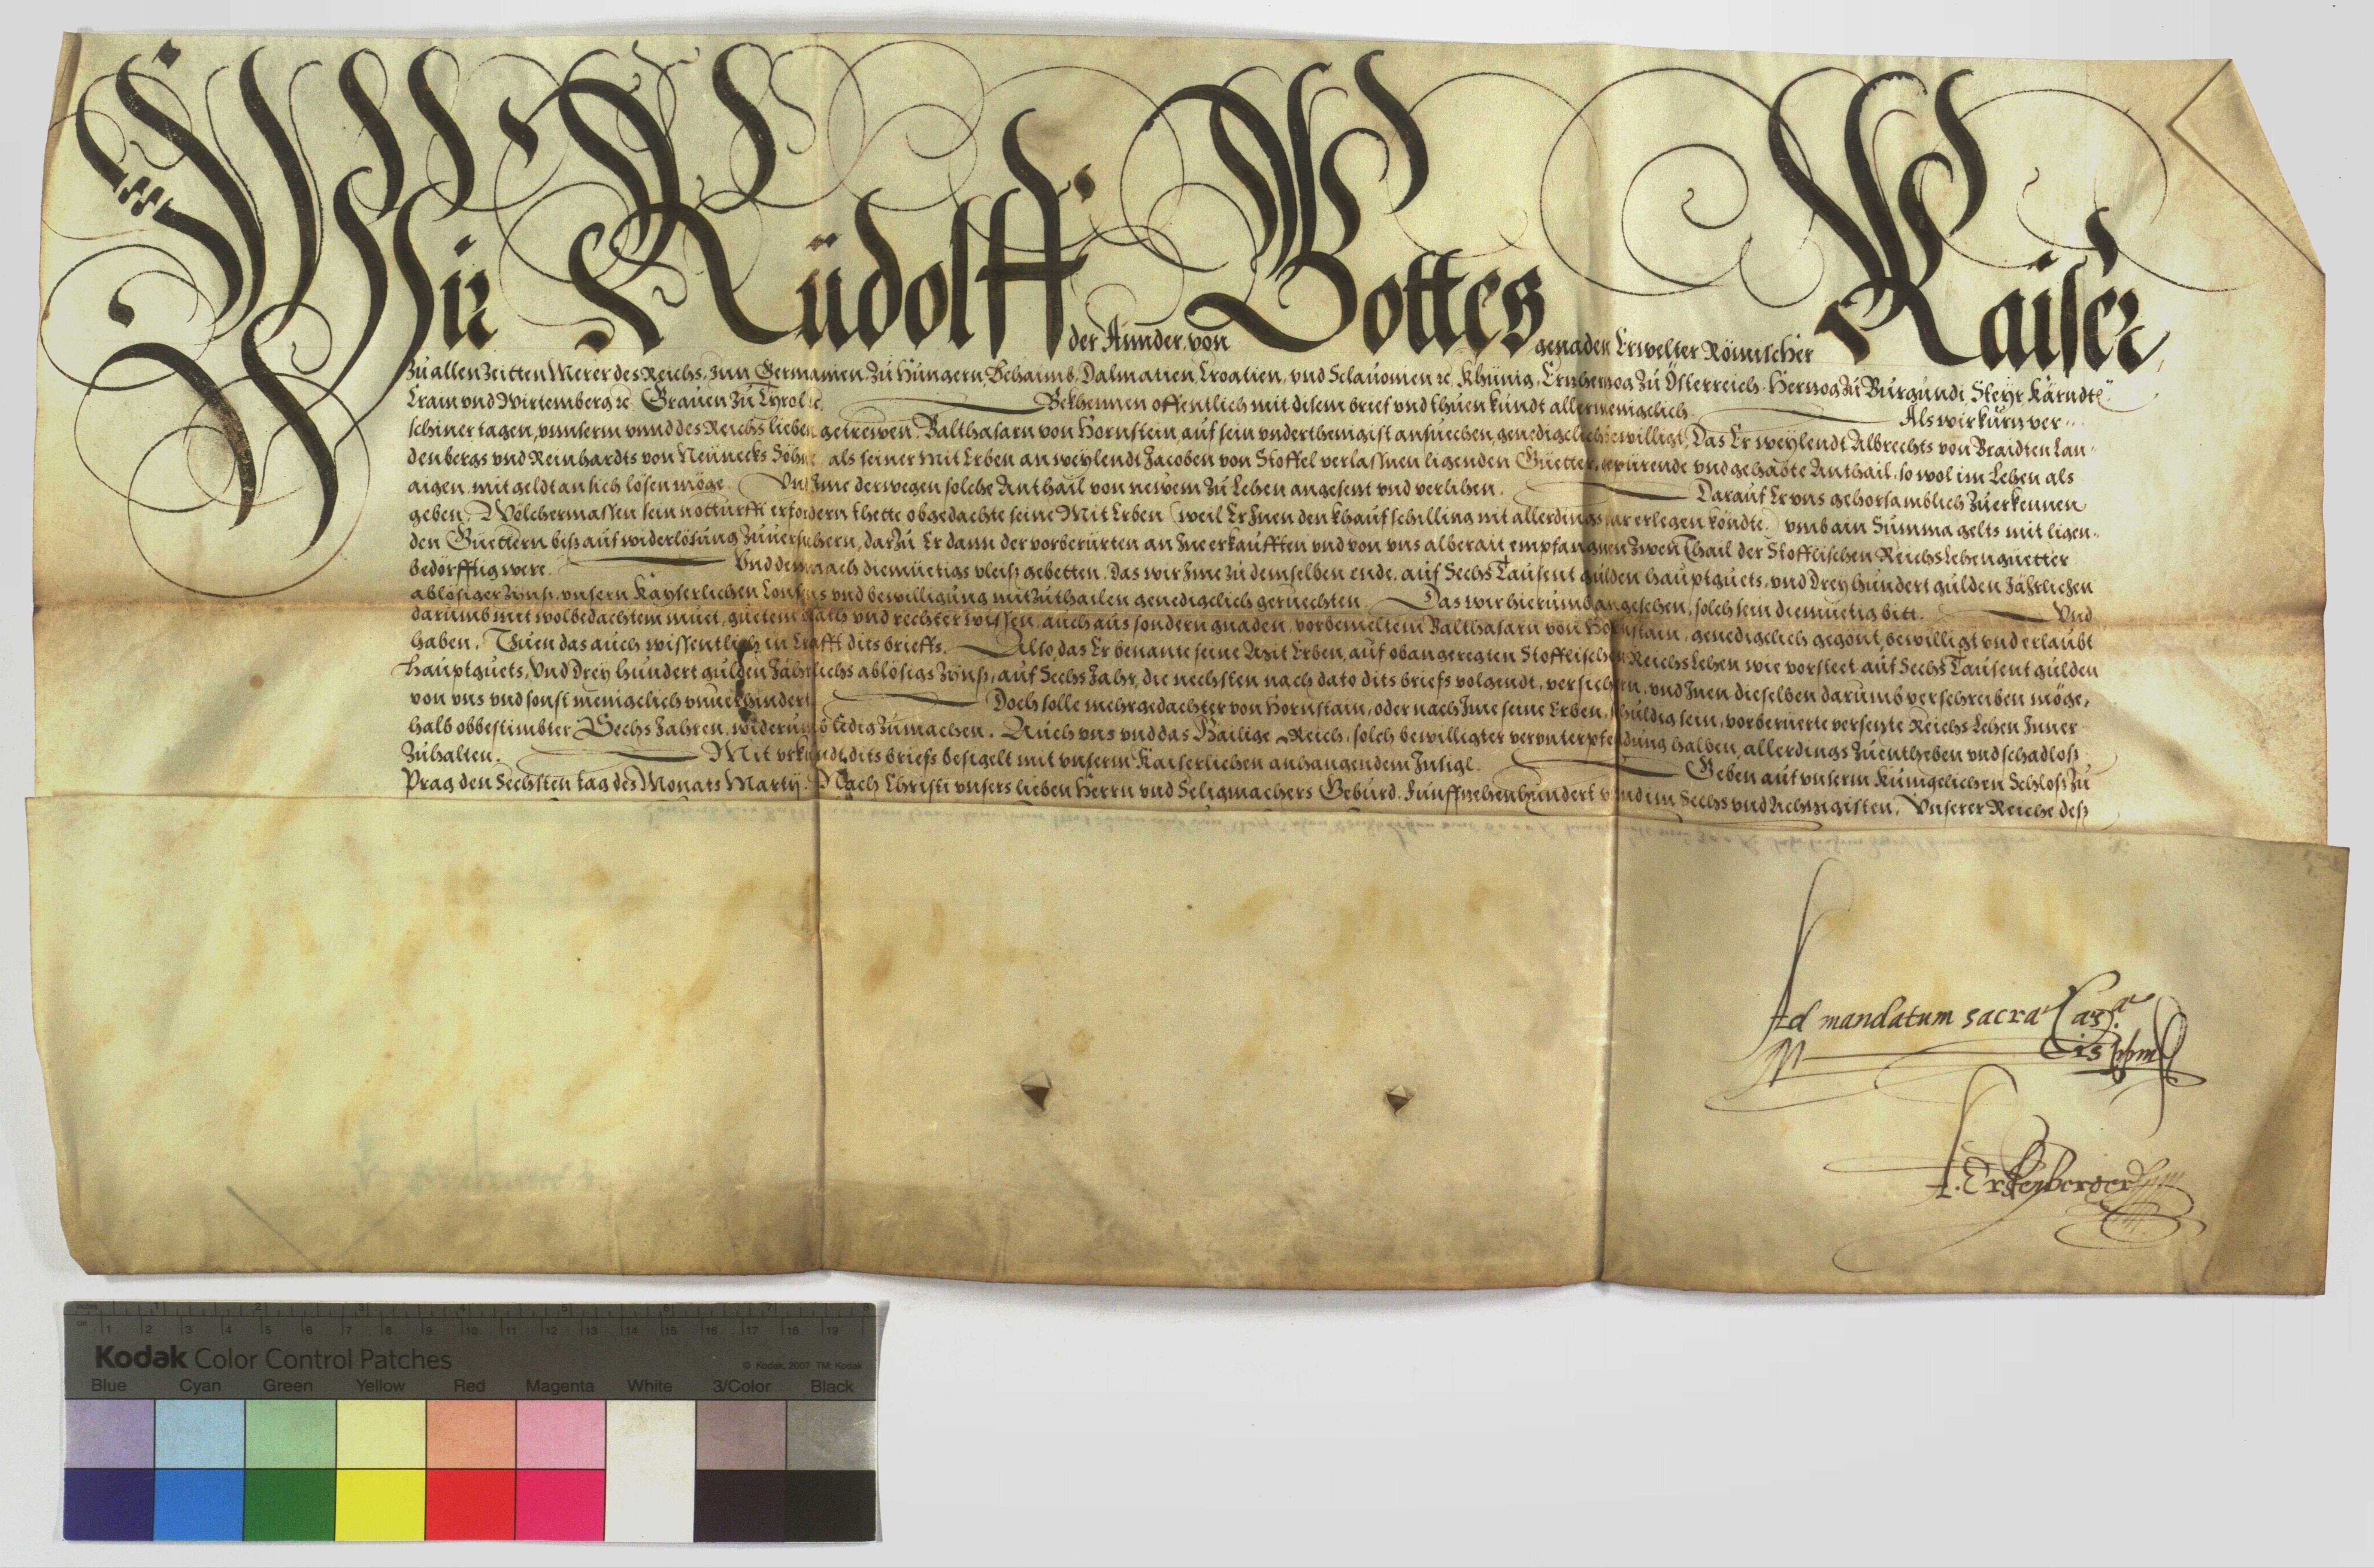 Wir Rudolff der Annder von Gottes genaden Erwelter Römischer Kaiser
zu allen Zeitten Merer des Reichs, Inn Germanien, zu Hungern, Behaimb, Dalmatien, Croatien, vnd Sclauonien ꝛc. Khünig, Ertzhertzog zu Österreich, Hertzog zu Burgundi, Steyr, Kärndten
Crain vnd Wirtemberg ꝛc. Grauen zu Tyrol ꝛc. Bekhennen offentlich mit disem brief vnd thuen kundt allermenigelich. Als wir kurtz ver-
schiner tagen, vnnserm vnnd des Reichs lieben getrewen Balthasarn von Hornstein, auf sein vnderthenigist ansuechen, genedigelich bewilligt, Das Er weylendt Albrechts von Braidten Lan-
denbergs vnd Reinhardts von Neünecks Söhne, als seiner Mit Erben an weylendt Jacoben von Stoffel verlassnen ligenden Güetter, gepürende vnd gehabte Anthail, so wol im Lehen als
aigen, mit geldt an sich lösen möge. Vnd Ime derwegen solche Anthail von newem zu Lehen angesetzt vnd verlihen. Darauf Er vns gehorsamblich zuerkennen
geben, Wölchermassen sein notturfft erfordern thette obgedachte seine Mit Erben (weil Er Inen den khaufschilling nit allerdings par erlegen köndte) vmb ain Summa gelts mit ligen-
den Güettern biß auf widerlösung zuuersichern, darzu Er dann der vorberürten an Ine erkaufften vnd von vns alberait empfangnen zwen Thail der Stofflischen Reichs Lehengüetter
bedörfftig were. Vnd demnach diemüetigs vleiß gebetten, Das wir Ime zu demselben ende, auf Sechs Tausent gulden hauptguets, vnd Drey hundert gulden Jährlichen
ablösiger Zinß, vnsern Kayserlichen Consens vnd bewilligung mitzuthailen genedigelich geruechten. Das wir hierumb angesehen, solch sein diemüetig bitt. Vnd
darumb mit wolbedachtem muet, guetem Rath vnd rechter wissen, auch aus sondern gnaden, vorbemeltem Balthasarn von Hornstain, genedigelich gegönt, bewilligt vnd erlaubt
haben, Thuen das auch wissentlich in Crafft dits briefs. Also, das Er benante seine Mit Erben, auf obangeregten Stofflischen Reichs Lehen wie vorsteet auf Sechs Tausent gulden
hauptguets, Vnd Drey hundert gulden Jährlichs ablösigs Zinß, auf Sechs Jahr, die nechsten nach dato dits briefs volgendt, versichern, vnd Inen dieselben darumb verschreiben möge,
von vns vnd sonst menigelich vnuerhindert. Doch solle mehrgedachter von Hornstain, oder nach Ime seine Erben, schuldig sein, vorberüerte versetzte Reichs Lehen Inner-
halb obbestimbter Sechs Jahren, widerumb ledig zumachen. Auch vns vnd das Hailige Reich, solch bewilligter verunterpfendung halben, allerdings zuentheben vnd schadloß
zuhalten. Mit vrkundt dits briefs besigelt mit vnserm Kaiserlichen anhangendem Insigl. Geben auf vnserm Künigelichen Schloß zu
Prag den Sechsten tag des Monats Martij. Nach Christi vnsers lieben Herrn vnd Seligmachers Geburd, Funffzehenhundert vnd im Sechs vnd Achtzigisten, Vnserer Reiche deß
Ad mandatum sacrae Caes.ae
M.tis ppm
A. Erstenberger
inches 1 2 3 4 5 6 7 8
cm 1 2 3 4 5 6 7 8 9 10 11 12 13 14 15 16 17 18 19
Kodak Color Control Patches
© Kodak, 2007 TM: Kodak
Blue Cyan Green Yellow Red Magenta White 3/Color Black